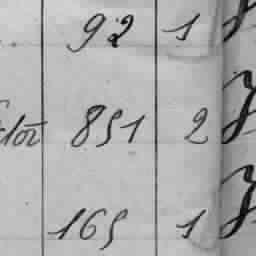 92 1
851 2
165 1